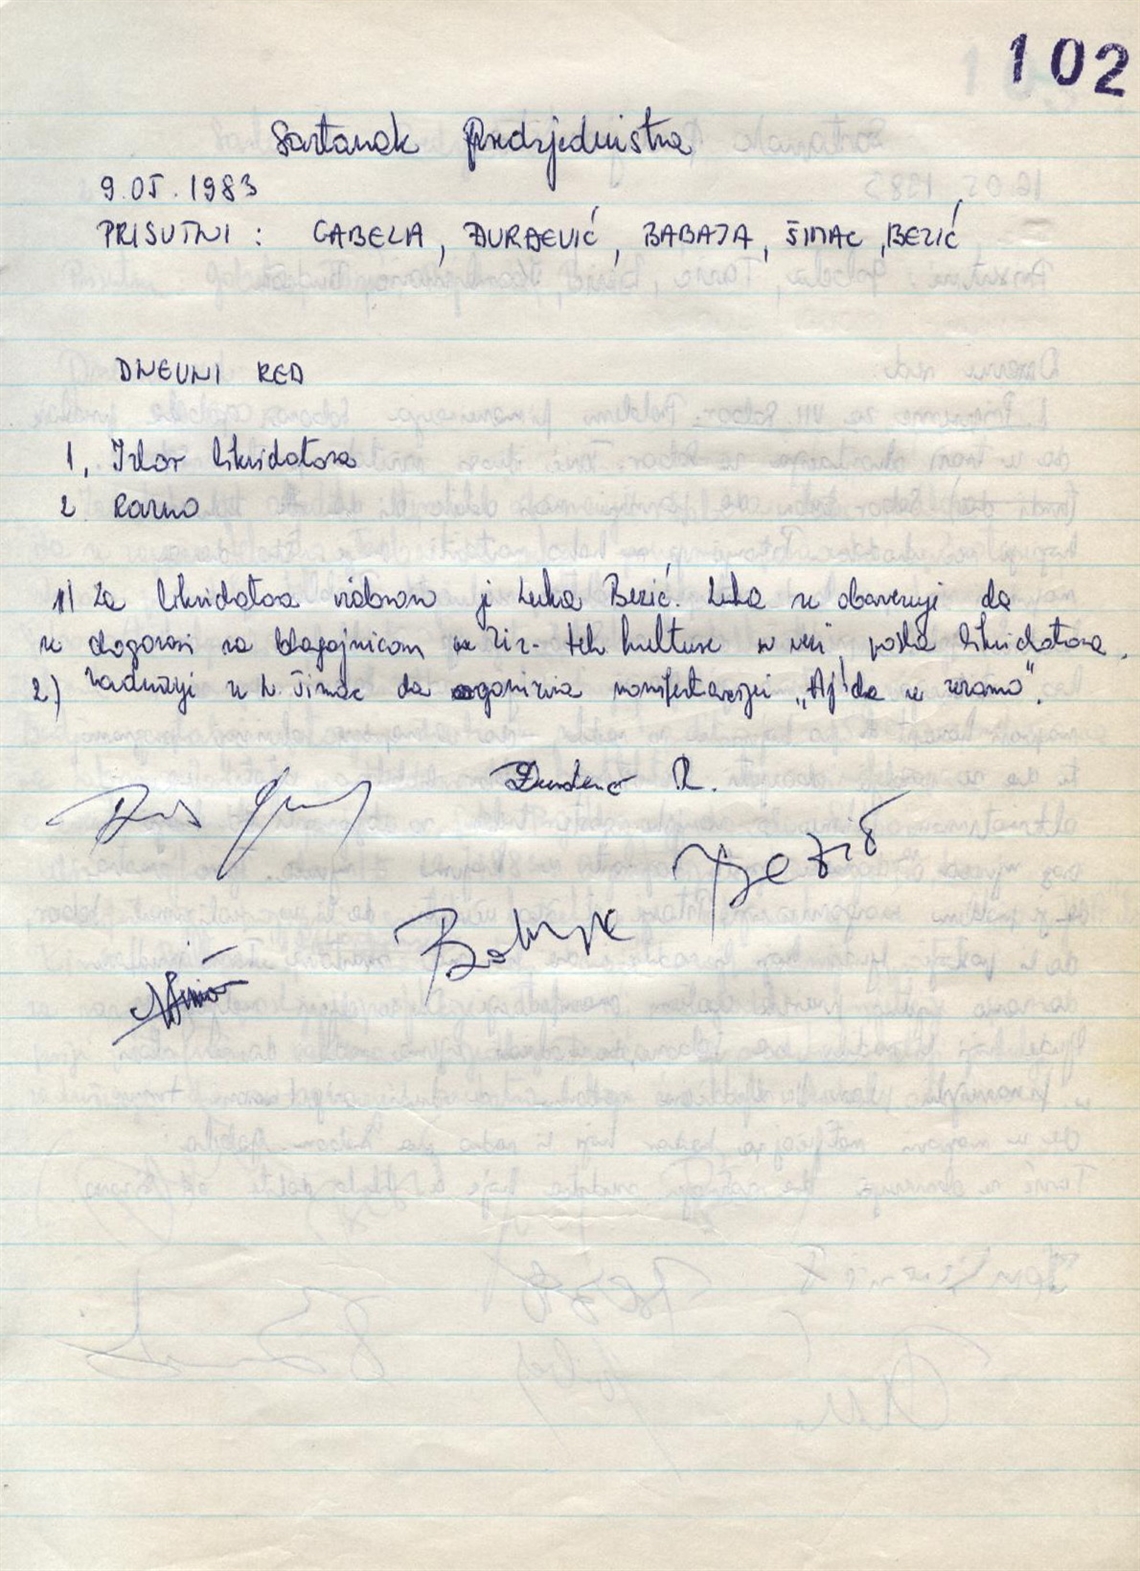 102
Sastanak Predsjedništva
9.05.1983
PRISUTNI : GABELA, ĐURĐEVIĆ, BABAJA, ŠIMAC, BEZIĆ
DNEVNI RED
1, Izbor likvidatora
2. Razno
1) Za likvidatora izabran je Luka Bezić. Luka se obavezuje da
se dogovori sa blagajnicom kulture u vezi posla likvidatora.
2) Zadužuje se N. Šimac da organizira manifestaciju „Aj'de se zezamo".
R.
Babaja
Bezić